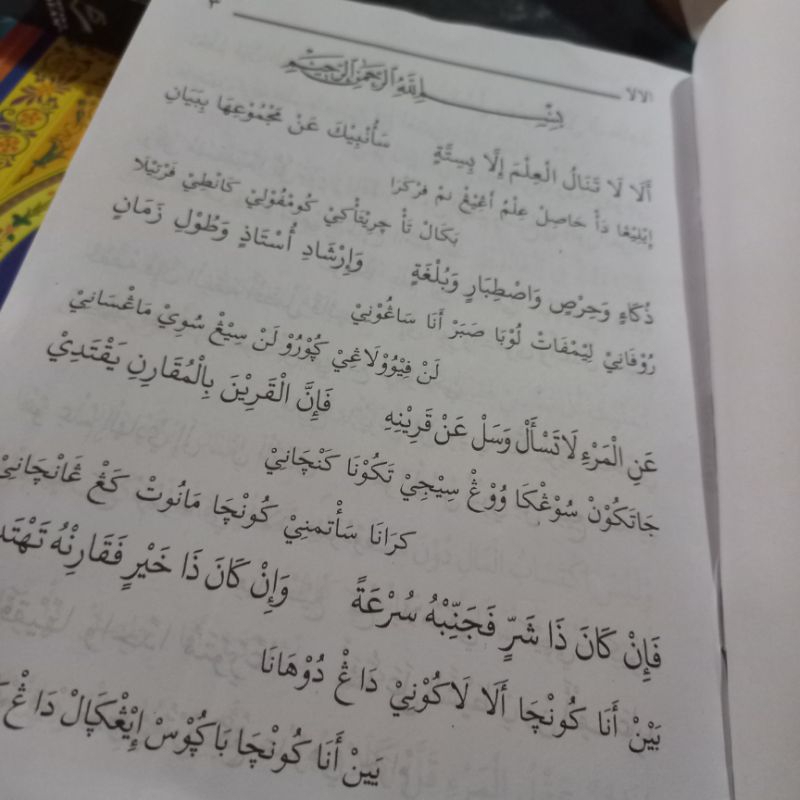 ٣
الالا
بِسْمِ اللهِ الرَّحْمٰنِ الرَّحِيْمِ
أَلَا لَا تَنَالُ الْعِلْمَ إِلَّا بِسِتَّةٍ سَأُنْبِيْكَ عَنْ مَجْمُوْعِهَا بِبَيَانِ
إِيْلِيْڠَا دَأْ حَاصِلْ عِلْمُ أَغِيْڠْ نَمْ فَرْكَرَا
بَكَالْ تَأْ چَرِيْتَأْكَيْ كُومْفُوْلَيْ كَانْطِيْ فَرْتَيْلَا
ذُكَاءٍ وَحِرْصٍ وَاصْطِبَارٍ وَبُلْغَةٍ وَإِرْشَادِ أُسْتَاذٍ وَطُوْلِ زَمَانٍ
رُوْفَانَيْ لِيْمْفَاتْ لُوْبَا صَبَرْ أَنَا سَاڠُوْنَيْ
لَنْ فِيْوُوْلَاڠَيْ ڮُوْرُوْ لَنْ سِيْڠْ سُوِيْ مَاڠْسَانَيْ
عَنِ الْمَرْءِ لَا تَسْأَلْ وَسَلْ عَنْ قَرِيْنِهِ فَإِنَّ الْقَرِيْنَ بِالْمُقَارِنِ يَقْتَدِيْ
جَاتَكُوْنْ سُوْڠْكَا وُوْڠْ سِيْجِيْ تَكُوْنَا كَنْچَانَيْ
كَرَانَا سَأْتَمَنَيْ كُوْنْچَا مَانُوتْ كَڠْ ڠَانْچَانَيْ
فَإِنْ كَانَ ذَا شَرٍّ فَجَنِّبْهُ سُرْعَةً وَإِنْ كَانَ ذَا خَيْرٍ فَقَارِنْهُ
يَيْنْ أَنَا كُونْچَا أَلَا لَاكُوْنَيْ دَاڠْ دُوْهَانَا
يَيْنْ أَنَا كُونْچَا بَاڮُوْسْ إِيْڠْڮَالْ دَاڠْ